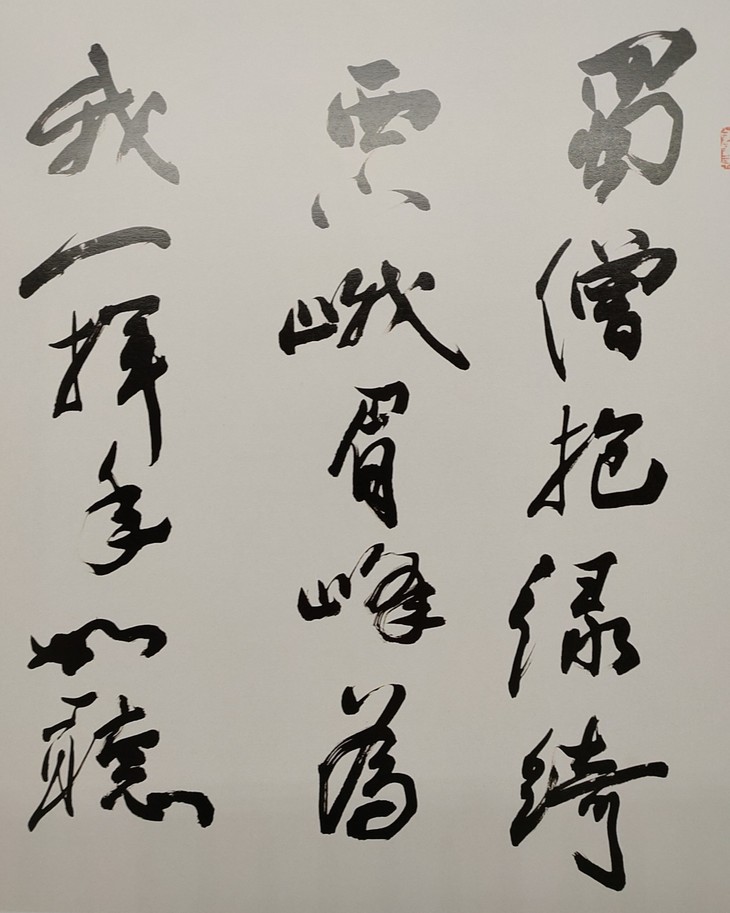 蜀僧抱綠綺
西下峨眉峰為
我一揮手如聽